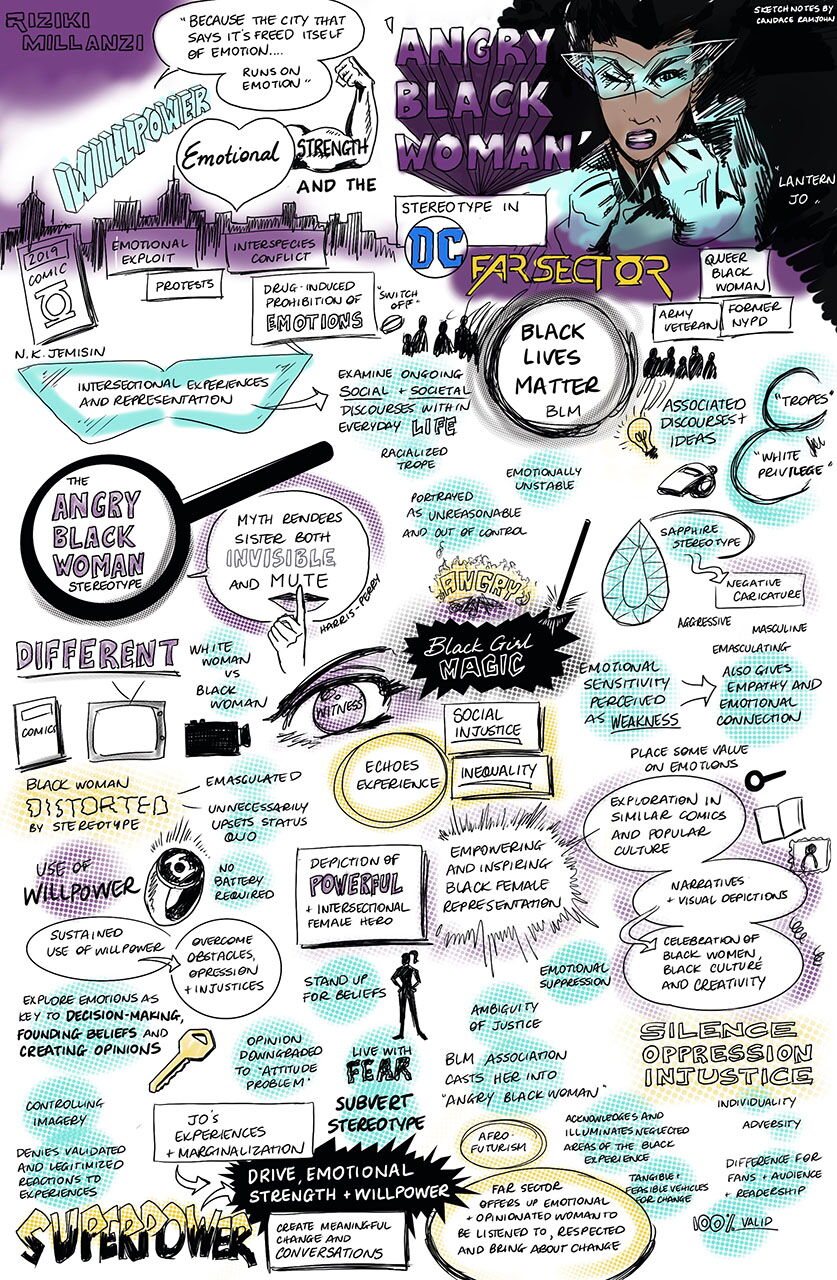 RIZIKI
MILLANZI
"BECAUSE THE CITY THAT
SAYS IT'S FREED ITSELF
OF EMOTION....
RUNS ON
EMOTION"
WILLPOWER
Emotional
STRENGTH
AND THE
'ANGRY
BLACK
WOMAN'
STEREOTYPE IN
DC
FAR SECTOR
SKETCHNOTES BY
CANDACE RAMJOHN
"LANTERN
JO"
2019
COMIC
N.K. JEMISIN
EMOTIONAL
EXPLOIT
INTERSPECIES
CONFLICT
PROTESTS
DRUG-INDUCED
PROHIBITION OF
EMOTIONS
"SWITCH
OFF"
QUEER
BLACK
WOMAN
ARMY
VETERAN
FORMER
NYPD
INTERSECTIONAL EXPERIENCES
AND REPRESENTATION
EXAMINE ONGOING
SOCIAL + SOCIETAL
DISCOURSES WITHIN
EVERYDAY LIFE
BLACK
LIVES
MATTER
BLM
ASSOCIATED
DISCOURSES +
IDEAS
"TROPES"
"WHITE
PRIVILEGE"
RACIALIZED
TROPE
PORTRAYED
AS UNREASONABLE
AND OUT OF CONTROL
EMOTIONALLY
UNSTABLE
ANGRY
THE
ANGRY
BLACK
WOMAN
STEREOTYPE
MYTH RENDERS
SISTER BOTH
INVISIBLE
AND MUTE
HARRIS-PERRY
SAPPHIRE
STEREOTYPE
NEGATIVE
CARICATURE
AGGRESSIVE
MASCULINE
EMASCULATING
DIFFERENT
WHITE
WOMAN
VS
BLACK
WOMAN
COMICS
Black Girl
MAGIC
WITNESS
EMOTIONAL
SENSITIVITY
PERCEIVED
AS WEAKNESS
ALSO GIVES
EMPATHY AND
EMOTIONAL
CONNECTION
PLACE SOME VALUE
ON EMOTIONS
ECHOES
EXPERIENCE
SOCIAL
INJUSTICE
INEQUALITY
BLACK WOMAN
DISTORTED
BY STEREOTYPE
EMASGULATED
UNNECESSARILY
UPSETS STATUS
QUO
EXPLORATION IN
SIMILAR COMICS
AND POPULAR
CULTURE
NARRATIVES
+ VISUAL DEPICTIONS
CELEBRATION OF
BLACK WOMEN,
BLACK CULTURE
AND CREATIVITY
USE OF
WILLPOWER
NO
BATTERY
REQUIRED
DEPICTION OF
POWERFUL
+ INTERSECTIONAL
FEMALE HERO
EMPOWERING
AND INSPIRING
BLACK FEMALE
REPRESENTATION
SUSTAINED
USE OF WILLPOWER
OVERCOME
OBSTACLES,
OPRESSION
+ INJUSTICES
STAND UP
FOR BELIEFS
EMOTIONAL
SUPPRESSION
AMBIGUITY
OF JUSTICE
EXPLORE EMOTIONS AS
KEY TO DECISION-MAKING,
FOUNDING BELIEFS AND
CREATING OPINIONS
OPINION
DOWNGRADED
TO "ATTITUDE
PROBLEM"
LIVE WITH
FEAR
SUBVERT
STEREOTYPE
BLM ASSOCIATION
CASTS HER INTO
"ANGRY BLACK WOMAN"
SILENCE
OPPRESSION
INJUSTICE
CONTROLLING
IMAGERY
DENIES VALIDATED
AND LEGITIMIZED
REACTIONS TO
EXPERIENCES
JO'S
EXPERIENCES
+ MARGINALIZATION
DRIVE, EMOTIONAL
STRENGTH + WILLPOWER
SUPERPOWER
CREATE MEANINGFUL
CHANGE AND
CONVERSATIONS
AFRO-
FUTURISM
FAR SECTOR
OFFERS UP EMOTIONAL
+ OPINIONATED WOMAN TO
BE LISTENED TO, RESPECTED
AND BRING ABOUT CHANGE
ACKNOWLEDGES AND
ILLUMINATES NEGLECTED
AREAS OF THE BLACK
EXPERIENCE
TANGIBLE +
FEASIBLE VEHICLES
FOR CHANGE
INDIVIDUALITY
ADVERSITY
DIFFERENCE FOR
FANS + AUDIENCE
+ READERSHIP
100% VALID